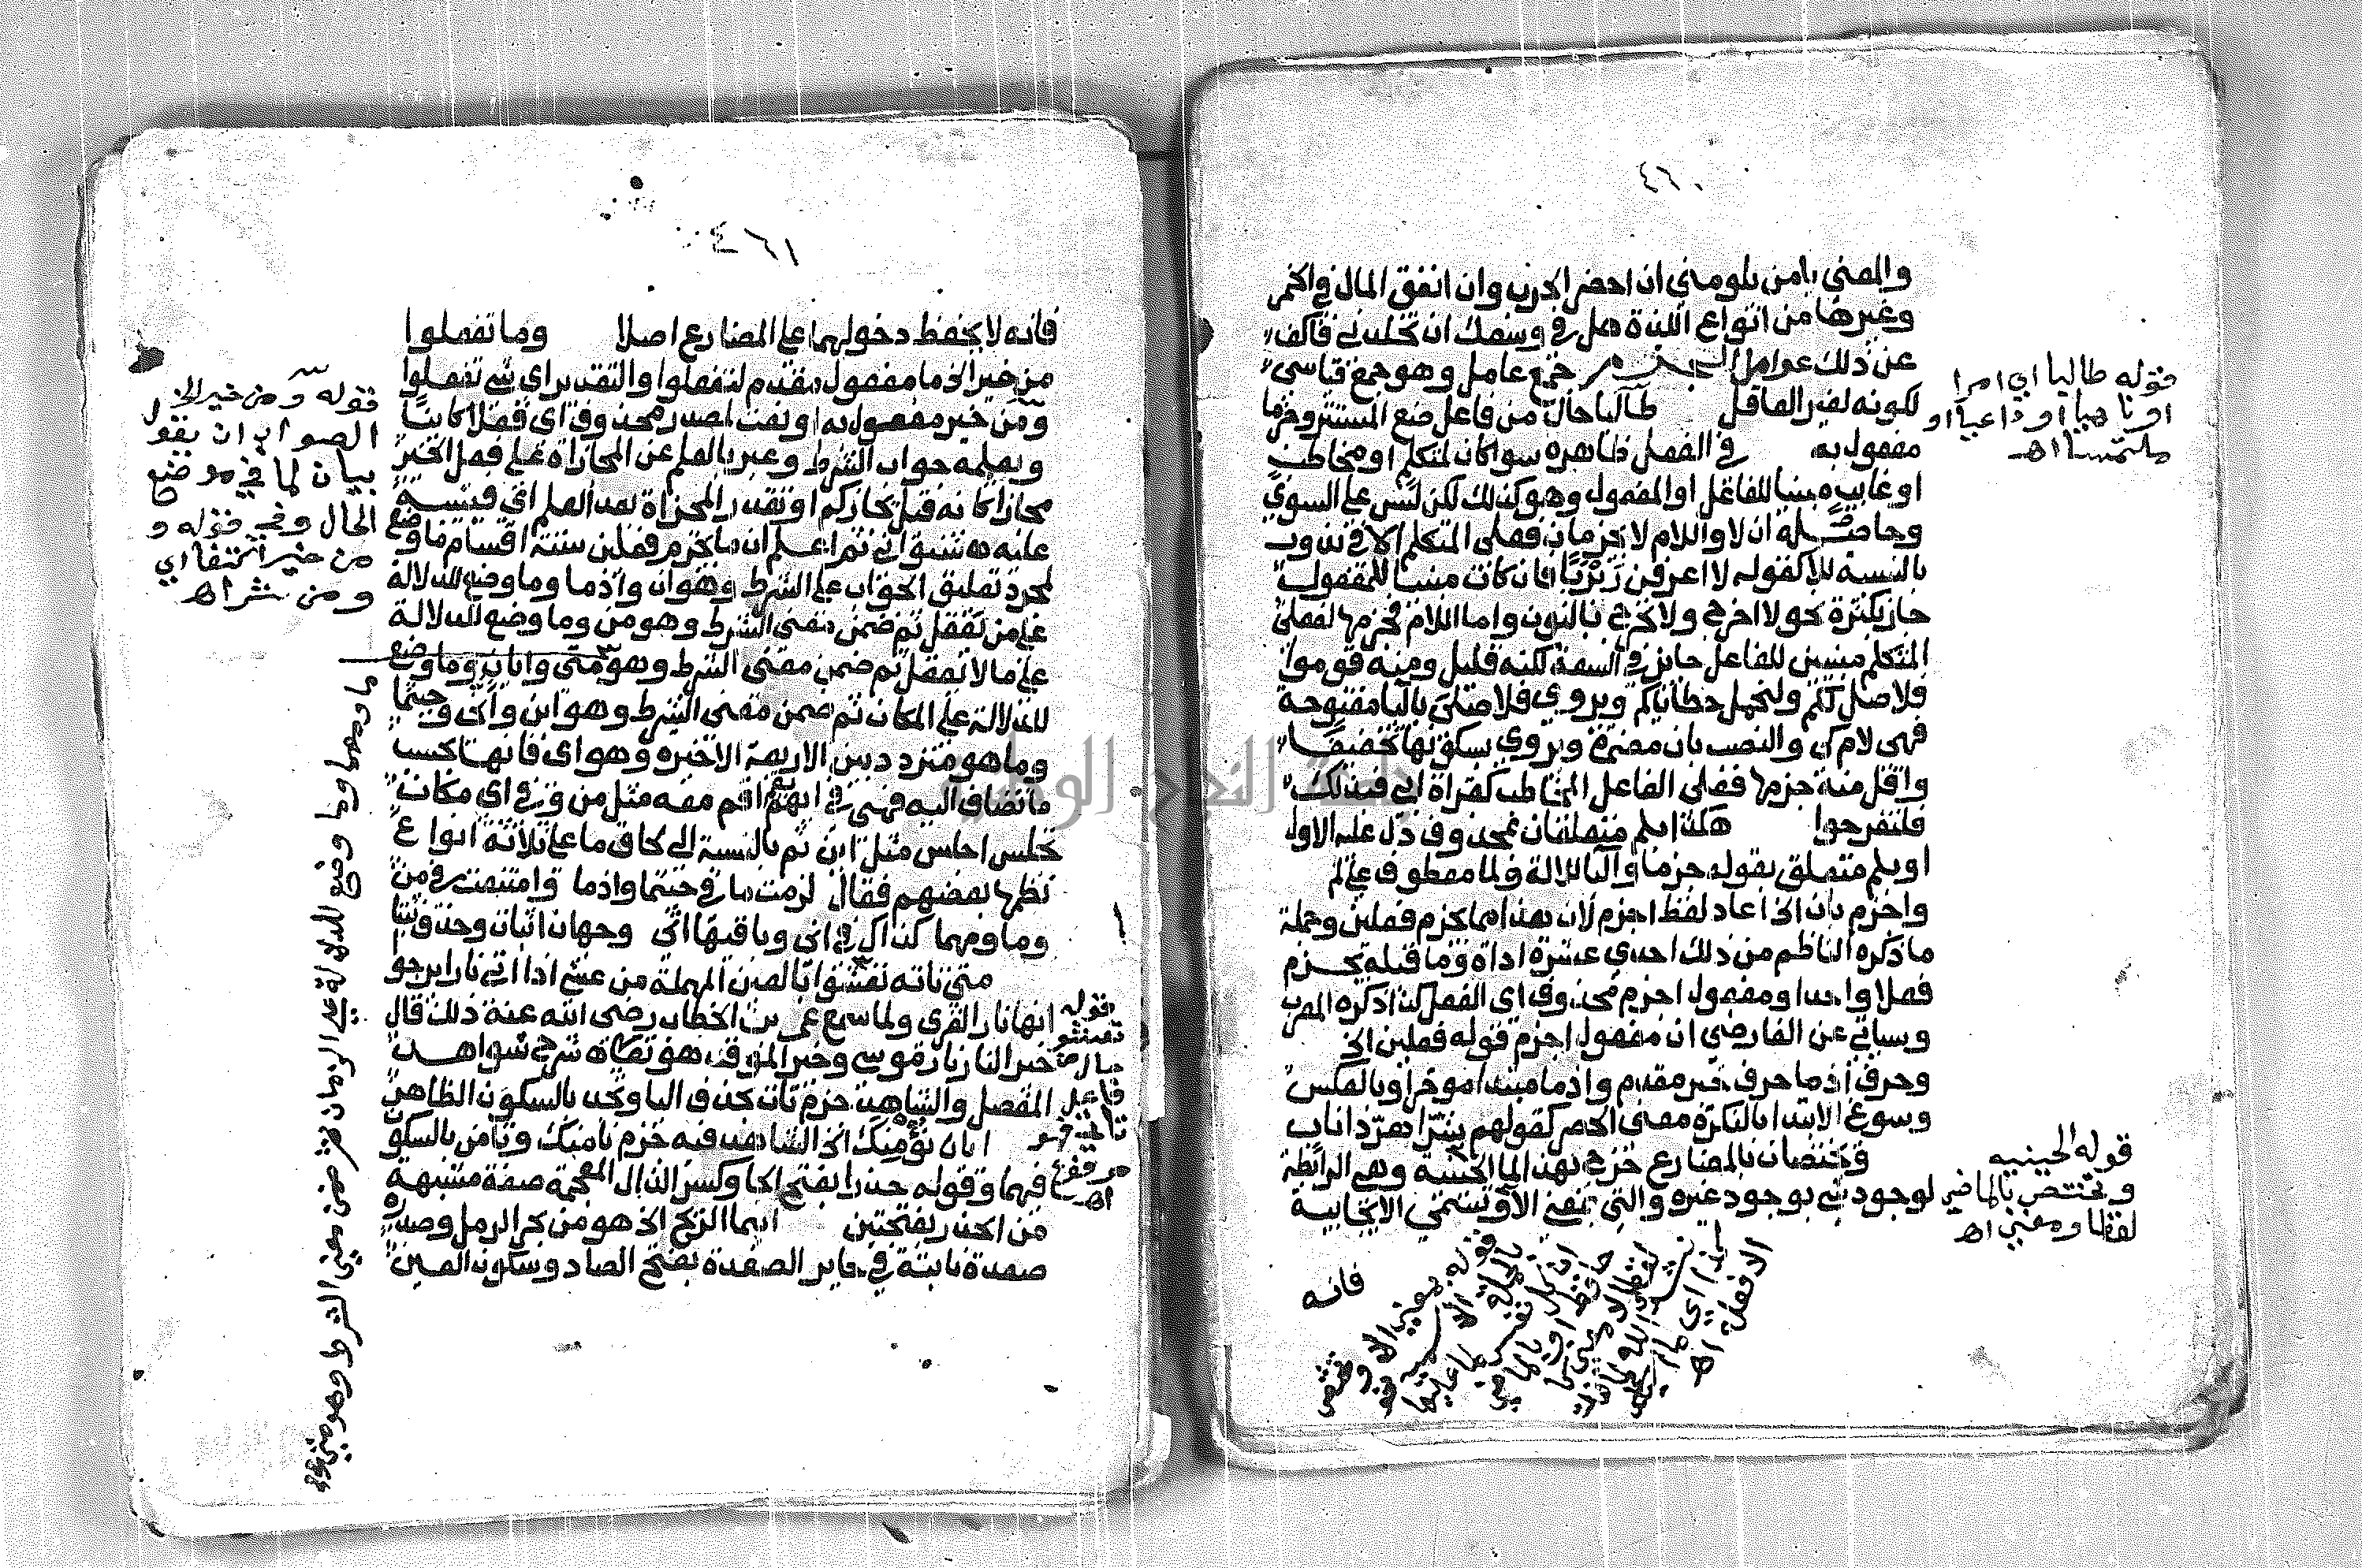 ٤٦٠
والمعنى يا من يلومني ان احضر الحرب وان انفق المال في الخمر
وغيرها من انواع اللذة هل في وسعك ان تخلدني فاكف
عن ذلك عوامل الجزم جمع عامل وهو جمع قياسي
لكونه لغير العاقل طالبا حال من فاعل ضع المستتر وجزما
مفعول به في الفعل ظاهره سوا كان لمتكلم او مخاطب
او غايب مبنيا للفاعل او المفعول وهو كذلك لكن ليس على السوي
وحاصله ان لا واللام لا يجزمان فعلى المتكلم الا في ندور
بالنسبة للا كقوله لا اعرفن ربربا فان كانت مبنيا للمفعول
جاز بكثرة نحو لا اخرج ولا نخرج بالنون واما اللام فجزمها لفعلى
المتكلم مبنيين للفاعل جايز في السعة لكنه قليل ومنه قوموا
فلاصل لكم ولنحمل خطاياكم ويروي فلاصلى باليا مفتوحة
فهى لام كي والنصب بان مضمرة ويروي بسكونها تخفيفا
واقل منه جزمها فعلى الفاعل المخاطب كقراة ابي فبذلك
فلتفرحوا هكذا بلم متعلقان بمحذوف دل عليه الاول
او بلم متعلق بقوله جزما والبا للالة ولما معطوف على لم
واجزم بان الخ اعاد لفظ اجزم لان بعدها ما يجزم فعلين وجملة
ما ذكره الناظم من ذلك احدي عشرة اداة وما قبله يجزم
فعلا واحدا ومفعول اجزم محذوف اي الفعل كذا ذكره المعرب
وسياتي عن الفارضي ان مفعول اجزم قوله فعلين الخ
وحرف اذما حرف خبر مقدم واذما مبتدا موخر او بالعكس
وسوغ الابتدا بالنكرة معنى الحصر كقولهم شر اهر ذا ناب
ويختصان بالمضارع خرج بهذا لما الحينية وهى الرابطة
لوجود شي بوجود غيره والتي بمعنى الا وتسمي الايجابية
فانه
قوله طالبا اي امرا
او ناهيا او داعيا او
ملتمسا اهـ
قوله الحينيه
وتختص بالماضي
لفظا ومعنى اهـ
قوله بمعنى الا
٤٦١
فانه لا يحفظ دخولهما على المضارع اصلا وما تفعلوا
من خير الخ ما مفعول مقدم لتفعلوا والتقدير اي شي تفعلوا
ومن خير مفعول به او نعت لمصدر محذوف اي فعلا كاينا
ويعلمه جواب الشرط وعبر بالعلم عن المجازاة على فعل الخير
مجازا كانه قيل يجازكم او تقدر المجازاة بعد العلم اي فيثيبه
عليه شنواني ثم اعلم ان ما يجزم فعلين ستة اقسام ما وضع
لمجرد تعليق الجواب على الشرط وهو ان واذما وما وضع للدلالة
على من يعقل ثم ضمن معنى الشرط وهو من وما وضع للدلالة
على ما لا يعقل ثم ضمن معنى الشرط وهو متى وايان وما وضع
للدلالة على المكان ثم ضمن معنى الشرط وهو اين وانى وحيثما
وما هو متردد بين الاربعة الاخيرة وهو اي فانها بحسب
ما تضاف اليه فهى في ايهم يقم اقم معه مثل من وفي اي مكان
تجلس اجلس مثل اين ثم بالنسبة الي لحاق ما على ثلاثة انواع
نظمها بعضهم فقال لزمت ما في حيثما واذما وامتنعت في من
وما ومهما كذاك في انى وباقيها اتى وجهان اثبات وحذف ثبتا
متى تاته تعشو ا بالعين المهملة من عشى اذا اتي نارا يرجو
انها نار القرى ولما سمع عمر بن الخطاب رضى الله عنه ذلك قال
خبر النار نار موسى وخير الموقد هو تعالى شرح شواهد
المفصل والشاهد جزم تات بحذف اليا وتجد بالسكون الظاهر
ايان نؤمنك الخ الشاهد فيه جزم نامنك وتامن بالسكون
فيهما وقوله حذرا بفتح الحا وكسر الذال المعجمة صفة مشبهة
من الحذر بفتحتين اينما الريح الخ هو من بحر الرمل وصدره
صعدة نابتة في حاير الصعدة بفتح الصاد وسكون العين
قوله ومن خير الخ
الصواب ان يقول
بيان لما في موضع
الحال وفي قوله و
من خير اكتفا اي
ومن شر اهـ
ما ومهما وما وضع للدلالة على الزمان ثم ضمن معنى الشرط وهو متى
قوله
تعشو
حال من
فاعل
تاتي فهو
مرفوع
اهـ